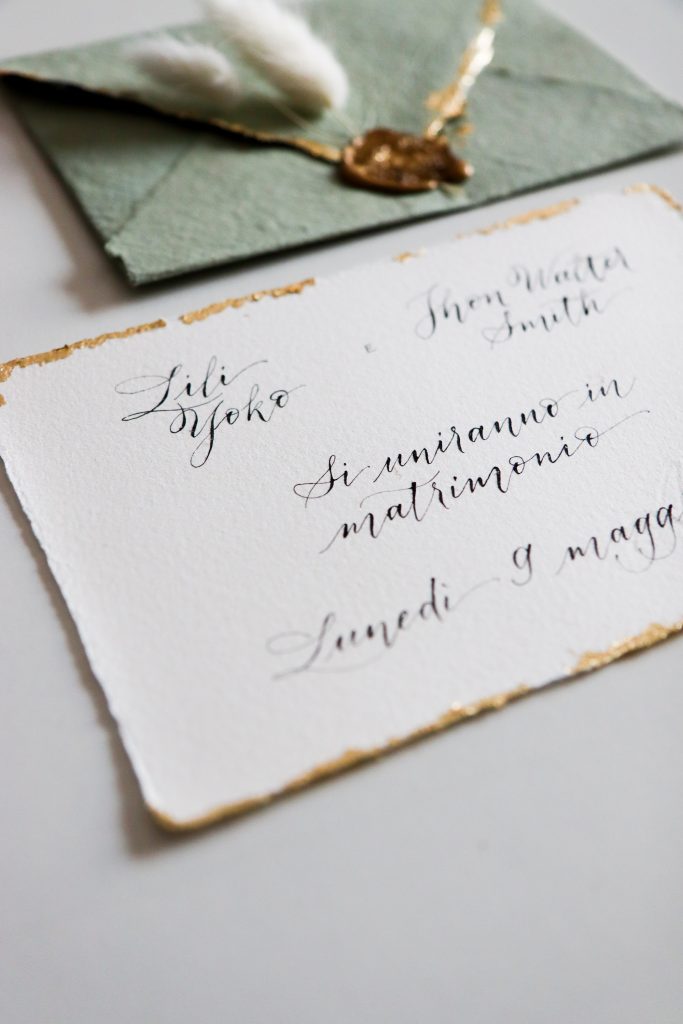 Lili
Yoko
e
Jhon Walter
Smith
Si uniranno in
matrimonio
Lunedì 9 magg